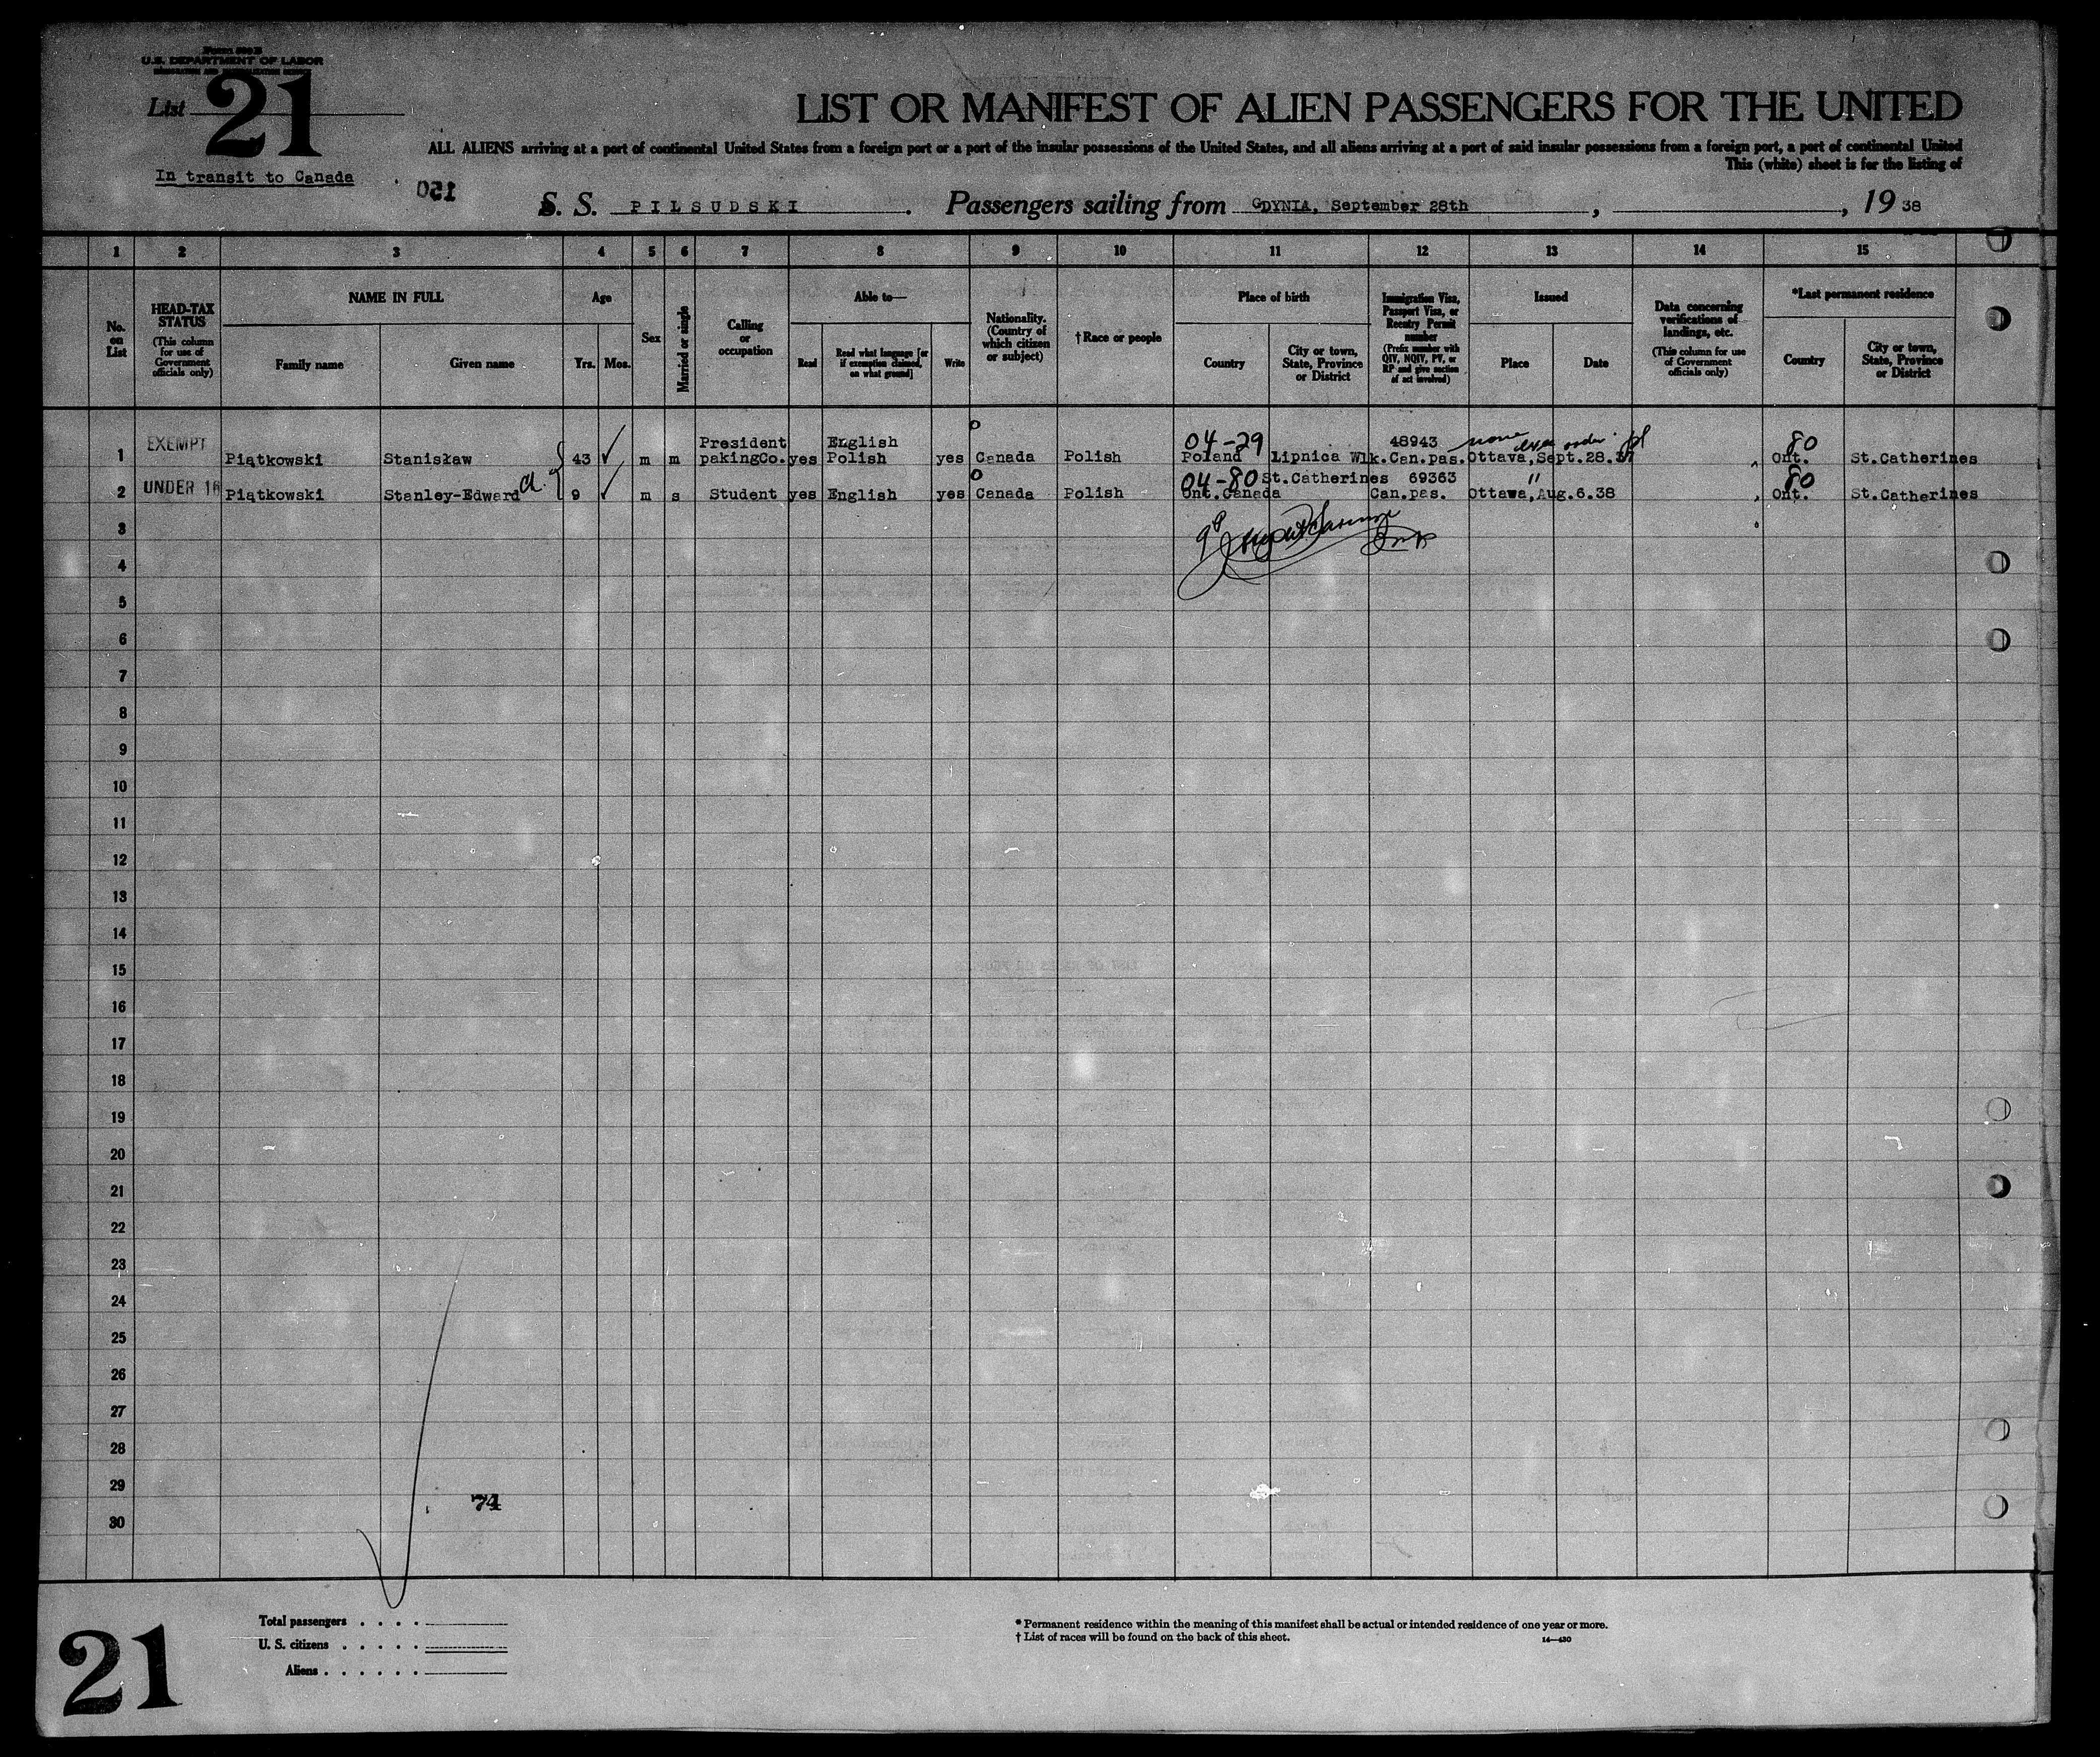 Form 500 B
U.S. DEPARTMENT OF LABOR
List 21
In transit to Canada
150
LIST OR MANIFEST OF ALIEN PASSENGERS FOR THE UNITED
ALL ALIENS arriving at a port of continental United States from a foreign port or a port of the insular possessions of the United States, and all aliens arriving at a port of said insular possessions from a foreign port, a port of continental United
This (white) sheet is for the listing of
S. S. PILSUDSKI . Passengers sailing from GDYNIA, September 28th , , 19 38
1 2 3 4 5 6 7 8 9 10 11 12 13 14 15
No. on List
HEAD-TAX STATUS (This column for use of Government officials only)
NAME IN FULL
Family name Given name
Age
Yrs. Mos.
Sex
Married or single
Calling or occupation
Able to—
Read Read what language [or if exemption claimed, on what ground] Write
Nationality. (Country of which citizen or subject)
†Race or people
Place of birth
Country City or town, State, Province or District
Immigration Visa, Passport Visa, or Reentry Permit number (Prefix number with QIV, NQIV, PV, or RP and give section of act involved)
Issued
Place Date
Data concerning verifications of landings, etc. (This column for use of Government officials only)
*Last permanent residence
Country City or town, State, Province or District
EXEMPT President English 04-29 48943 none 80
1 Piątkowski Stanisław 43 m m pakingCo. yes Polish yes Canada Polish Poland Lipnica Wlk. Can.pas. Ottawa, Sept.28.37 Ont. St.Catherines
04-80 St.Catherines 69363 " 80
2 UNDER 16 Piątkowski Stanley-Edward 9 m s Student yes English yes Canada Polish Ont.Canada Can.pas. Ottawa, Aug.6.38 Ont. St.Catherines
3
4
5
6
7
8
9
10
11
12
13
14
15
16
17
18
19
20
21
22
23
24
25
26
27
28
29
74
30
Total passengers . . . .
U. S. citizens . . . . .
Aliens . . . . . .
21
* Permanent residence within the meaning of this manifest shall be actual or intended residence of one year or more.
† List of races will be found on the back of this sheet.
14—430